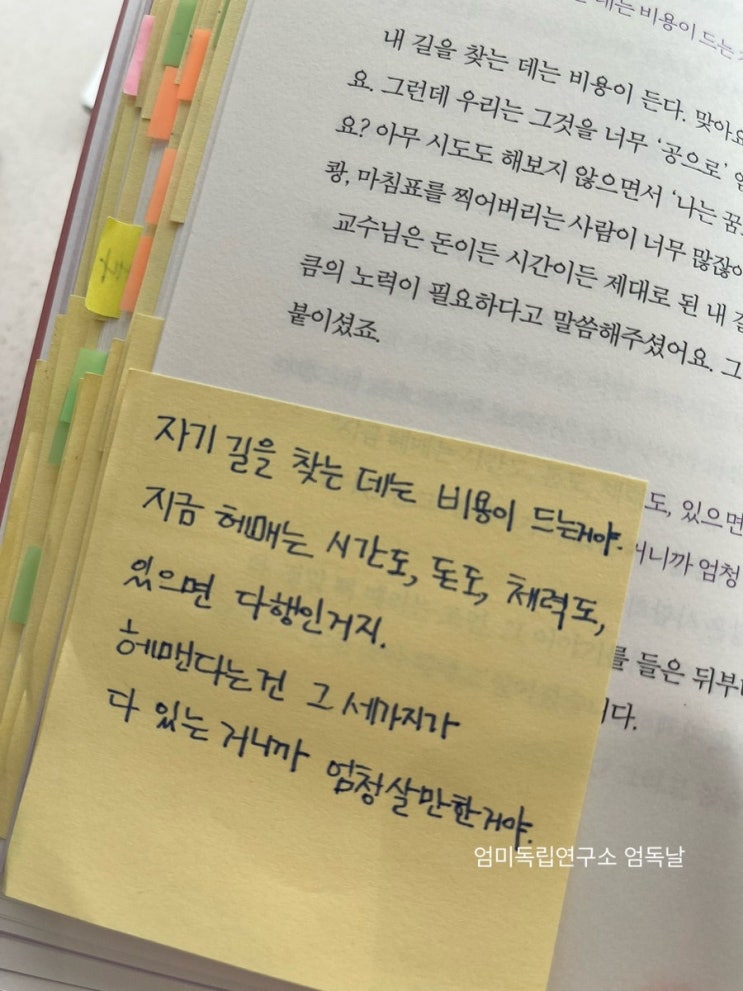 데는 비용이 드는
내 길을 찾는 데는 비용이 든다. 맞아요
요. 그런데 우리는 그것을 너무 ‘공으로’
요? 아무 시도도 해보지 않으면서 ‘나는 꿈
쾅, 마침표를 찍어버리는 사람이 너무 많잖아
교수님은 돈이든 시간이든 제대로 된 내 길
큼의 노력이 필요하다고 말씀해주셨어요. 그
붙이셨죠.
자기 길을 찾는 데는 비용이 드는거야.
지금 헤매는 시간도, 돈도, 체력도,
있으면 다행인거지.
헤맨다는건 그 세가지가
다 있는 거니까 엄청살만한거야.
도, 있으면
거니까 엄청
를 들은 뒤부터
니다.
엄미독립연구소 엄독날